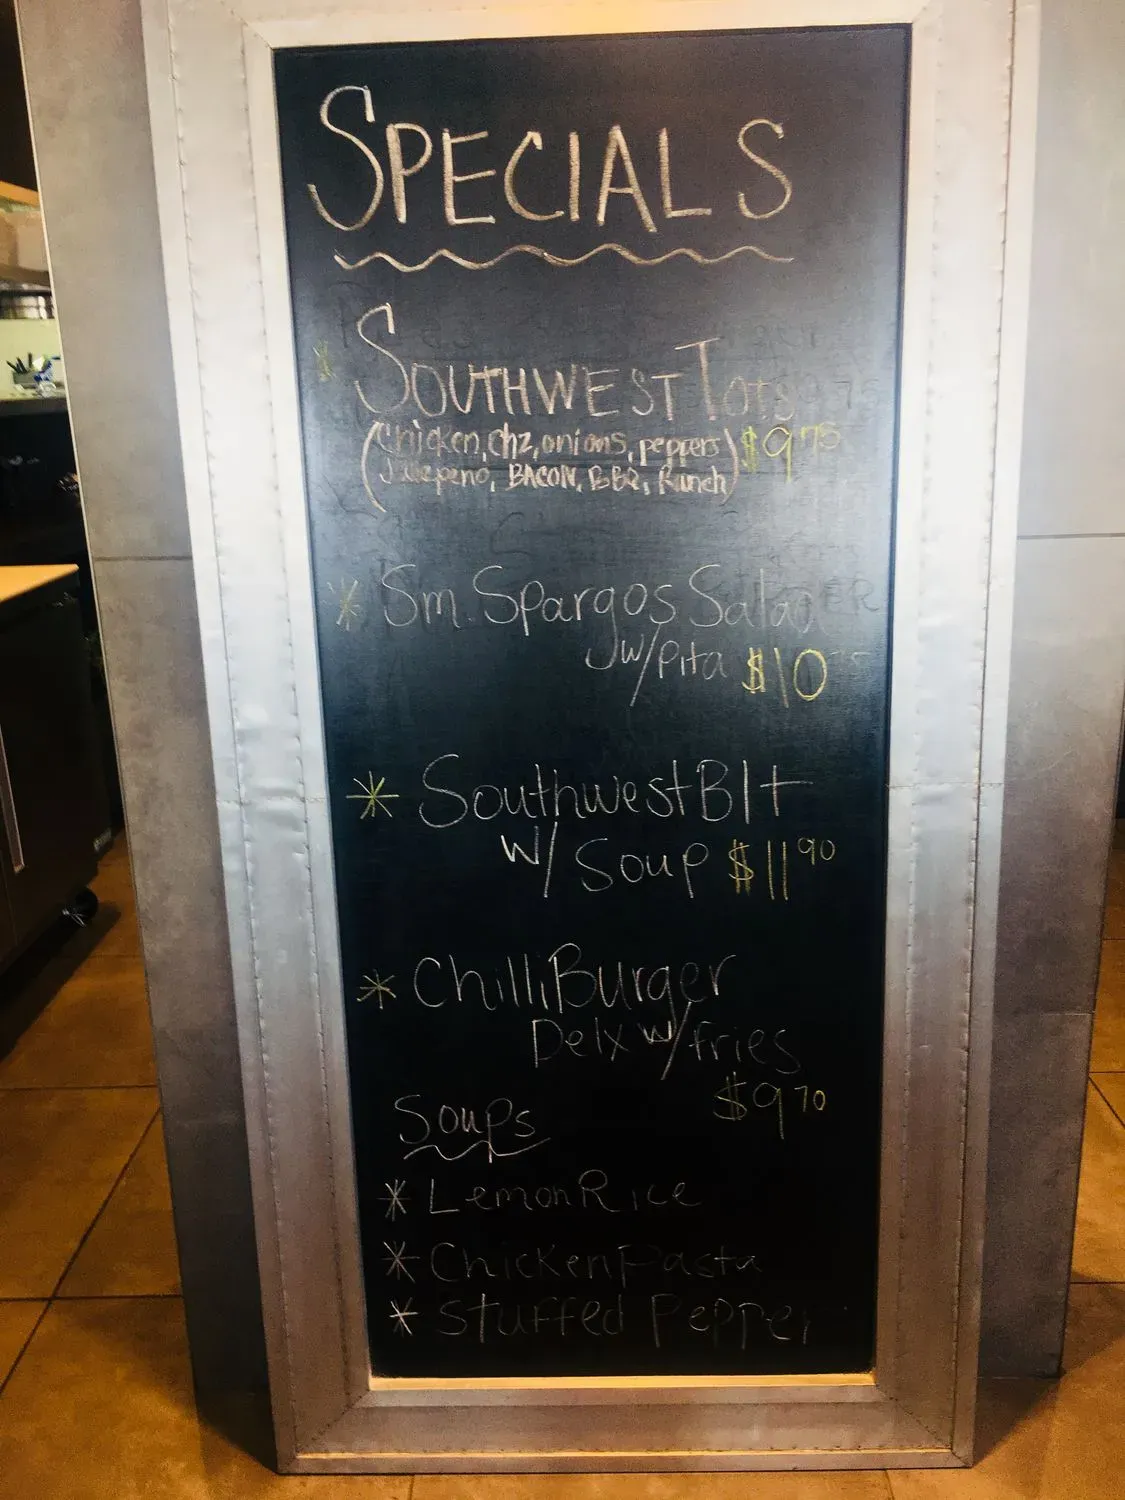 SPECIALS
* SOUTHWEST TOTS
(Chicken, chz, onions, peppers) $9.75
Jalepeno, BACON, BBQ, Ranch)
* Sm. Spargos Salad
w/Pita $10
* Southwest Blt
w/ Soup $11.90
* Chilli Burger
Delx w/fries
$9.70
Soups
* Lemon Rice
* Chicken Pasta
* Stuffed Pepper